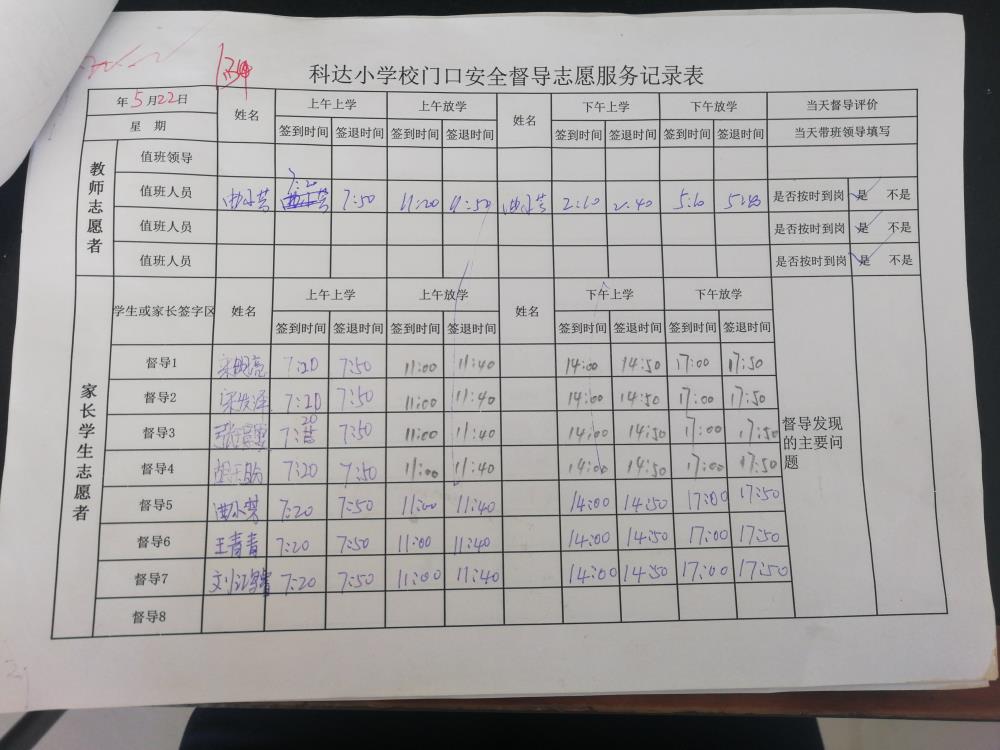 科达小学校门口安全督导志愿服务记录表
年5月22日 姓名 上午上学 上午放学 姓名 下午上学 下午放学 当天督导评价
星 期 签到时间 签退时间 签到时间 签退时间 签到时间 签退时间 签到时间 签退时间 当天带班领导填写
教师志愿者
值班领导
值班人员 7:20 7:50 11:20 11:50 2:10 2:40 5:10 是否按时到岗 是 不是
值班人员 是否按时到岗 是 不是
值班人员 是否按时到岗 是 不是
家长学生志愿者
学生或家长签字区 姓名 上午上学 上午放学 姓名 下午上学 下午放学
签到时间 签退时间 签到时间 签退时间 签到时间 签退时间 签到时间 签退时间
督导1 7:20 7:50 11:00 11:40 14:00 14:50 17:00 17:50
督导2 7:20 7:50 11:00 11:40 14:00 14:50 17:00 17:50
督导3 7:20 7:50 11:00 11:40 14:00 14:50 17:00 17:50
督导4 7:20 7:50 11:00 11:40 14:00 14:50 17:00 17:50
督导5 7:20 7:50 11:00 11:40 14:00 14:50 17:00 17:50
督导6 王青青 7:20 7:50 11:00 11:40 14:00 14:50 17:00 17:50
督导7 7:20 7:50 11:00 11:40 14:00 14:50 17:00 17:50
督导8
督导发现
的主要问
题